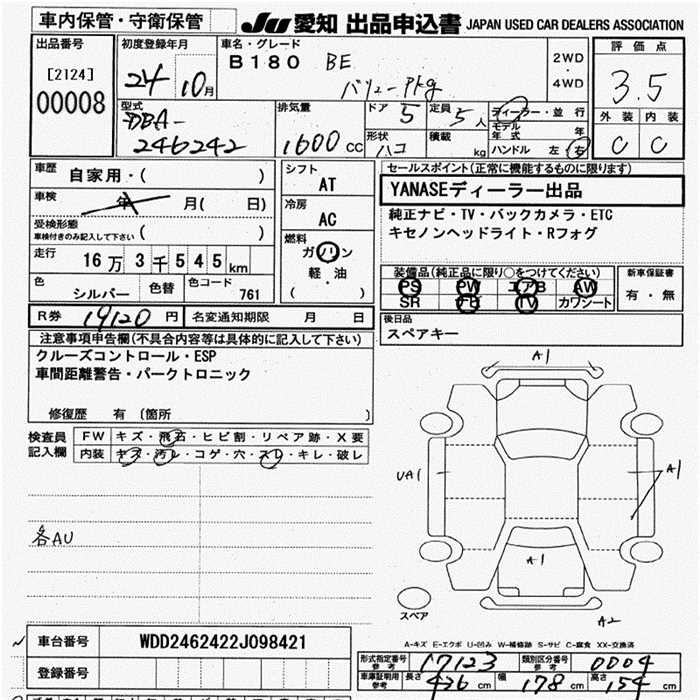 車内保管・守衛保管
JU 愛知 出品申込書 JAPAN USED CAR DEALERS ASSOCIATION
出品番号
[2124]
00008
初度登録年月
24 10月
車名・グレード
B180 BE
バリューPkg
2WD
・
4WD
評価点
3.5
外装 内装
C C
型式
DBA-
246242
排気量
1600 CC
ドア 5
定員 5人
ディーラー・並行
モデル年式 年
形状 ハコ
積載 kg
ハンドル 左 右
車歴
自家用・( )
車検
年 月( 日)
受検形態
車検付きのみ記入して下さい ( )
走行
16万3千545km
色
シルバー
色替
色コード
761
シフト
AT
冷房
AC
燃料
ガソリン
軽・油
( )
セールスポイント(正常に機能するものに限ります)
YANASEディーラー出品
純正ナビ・TV・バックカメラ・ETC
キセノンヘッドライト・Rフォグ
装備品(純正品に限り○をつけてください)
PS PW エアB AW
SR TV カワシート
新車保証書
有・無
後日品
スペアキー
R券 19120 円 名変通知期限 月 日
注意事項申告欄(不具合内容等は具体的に記入して下さい)
クルーズコントロール・ESP
車間距離警告・パークトロニック
修復歴 有 (箇所 )
検査員
記入欄
FW キズ・飛石・ヒビ割・リペア跡・X要
内装 キズ・汚レ・コゲ・穴・スレ・キレ・破レ
各AU
A1
UA1
A1
A1
スペア
A2
車台番号 WDD2462422J098421
登録番号
A-キズ E-エクボ U-凹み W-補修跡 S-サビ C-腐食 XX-交換済
形式指定番号 参考 17123
類別区分番号 参考 0004
車庫証明用 参考 長さ 436 cm 幅 178 cm 高さ 154 cm